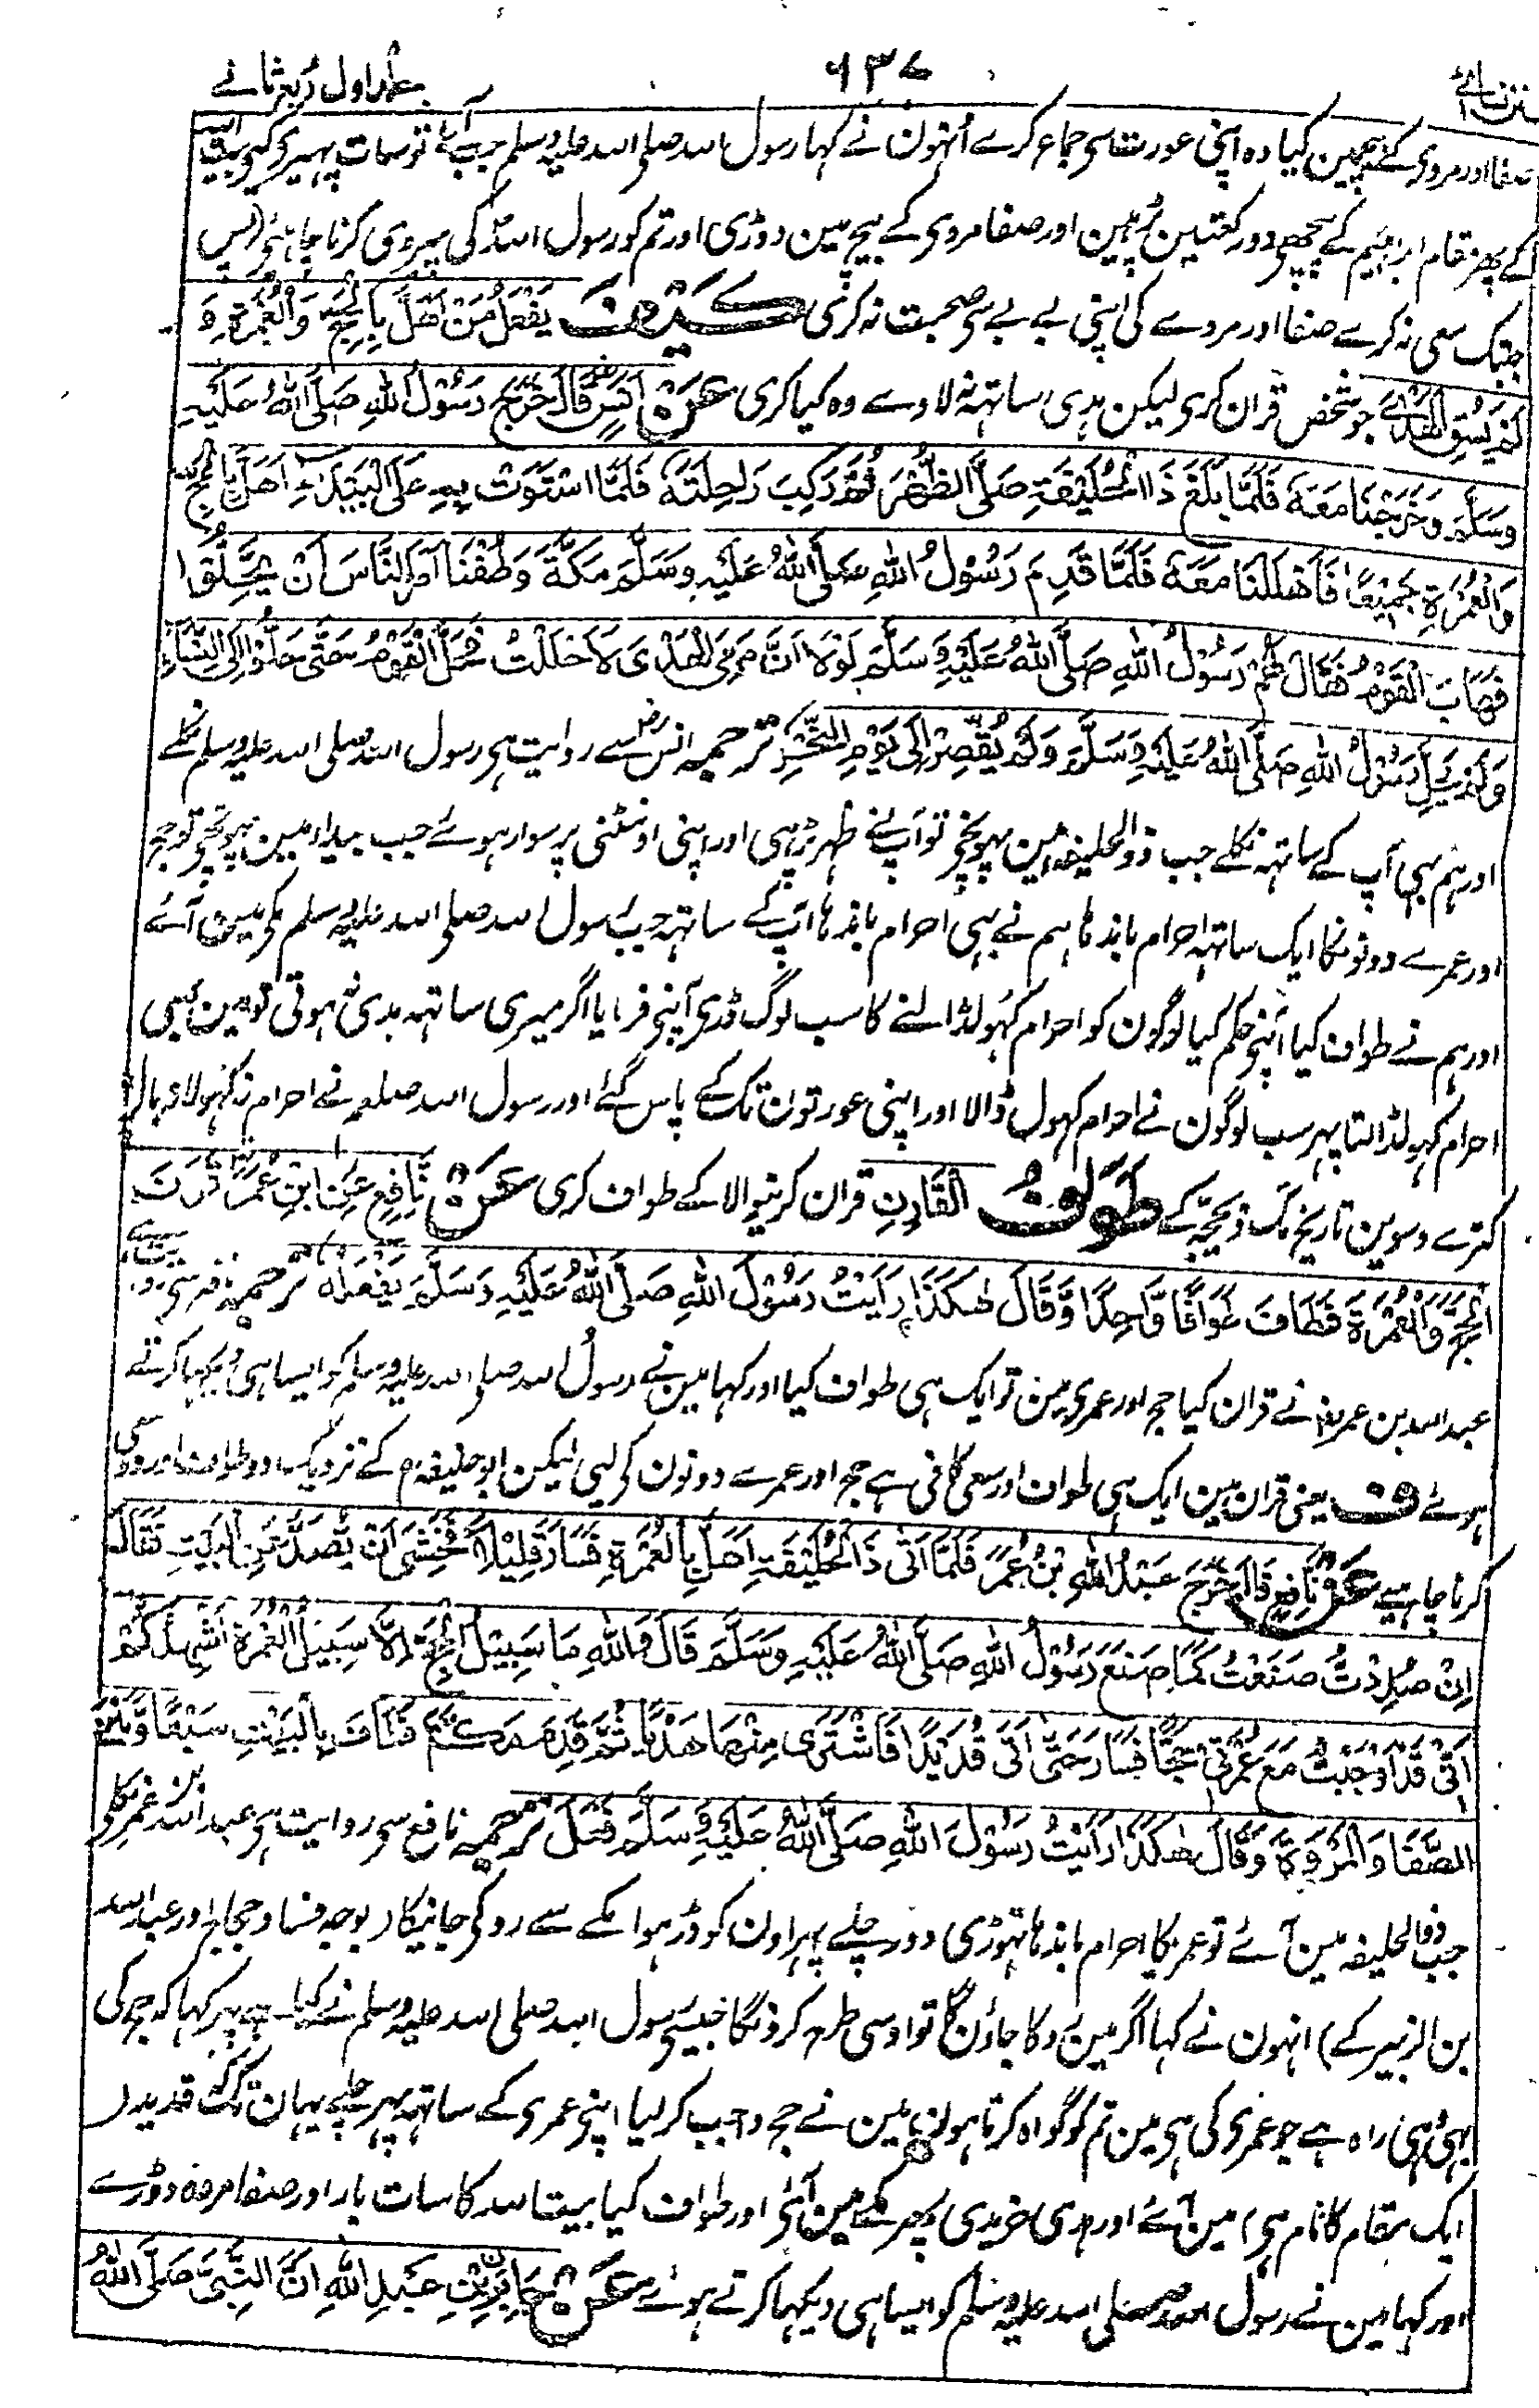 جلد اول ربع ثانے ۶۳۷ سنن نسائے
صفا اور مروی کے بیچمین کیا وہ اپنی عورت سی جماع کرے اُنہون نے کہا رسول اللہ صلی اللہ علیہ وسلم جب آئے تو سات پہیری کیے بیت اللہ
کے پھر مقام ابراہیم کے پیچہی دو رکعتین پڑہین اور صفا مروی کے بیچ مین دوڑی اور تم کو رسول اللہ کی پیروی کرنا چاہئی (پس
جبتک سعی نہ کرے صفا اور مروے کی اپنی بے بے سی صحبت نہ کری کَیْفَ یَفْعَلُ مَنْ اَھَلَّ بِالْحَجِّ وَالْعُمْرَۃِ وَ
لَمْ یَسُقِ الْھَدْیَ جو شخص قران کری لیکن ہدی ساتہہ نہ لاوے وہ کیا کری عَنْ اَنَسٍ قَالَ خَرَجَ رَسُوْلُ اللہِ صَلَّی اللہُ عَلَیْہِ
وَسَلَّمَ وَخَرَجْنَا مَعَہٗ فَلَمَّا بَلَغَ ذَا الْحُلَیْفَۃِ صَلَّی الظُّھْرَ ثُمَّ رَکِبَ رَاحِلَتَہٗ فَلَمَّا اسْتَوَتْ بِہٖ عَلَی الْبَیْدَاءِ اَھَلَّ بِالْحَجِّ
وَالْعُمْرَۃِ جَمِیْعًا فَاَھْلَلْنَا مَعَہٗ فَلَمَّا قَدِمَ رَسُوْلُ اللہِ صَلَّی اللہُ عَلَیْہِ وَسَلَّمَ مَکَّۃَ وَطُفْنَا اَمَرَ النَّاسَ اَنْ یَّحِلُّوْا
فَھَابَ الْقَوْمُ فَقَالَ لَھُمْ رَسُوْلُ اللہِ صَلَّی اللہُ عَلَیْہِ وَسَلَّمَ لَوْلَا اَنَّ مَعِیَ الْھَدْیَ لَاَحْلَلْتُ فَحَلَّ الْقَوْمُ حَتّٰی حَلُّوْا اِلَی النِّسَاءِ
وَلَمْ یَحِلَّ رَسُوْلُ اللہِ صَلَّی اللہُ عَلَیْہِ وَسَلَّمَ وَلَمْ یُقَصِّرْ اِلٰی یَوْمِ النَّحْرِ ترجمہ انس رض سے روایت ہی رسول اللہ صلی اللہ علیہ وسلم نکلے
اور ہم بہی آپ کے ساتہہ نکلے جب ذوالحلیفہ مین پہونچے تو آپ نے ظہر پڑہی اور اپنی اونٹنی پر سوار ہوئے جب بیداء مین پہونچے تو حج
اور عمرے دونونکا ایک ساتہہ احرام باندہا ہم نے بہی احرام باندہا آپ کے ساتہہ جب رسول اللہ صلی اللہ علیہ وسلم مکی مین آئے
اور ہم نے طواف کیا آپنے حکم کیا لوگون کو احرام کہولڈالنے کا سب لوگ ڈری آپنے فرمایا اگر میری ساتہہ ہدی نہ ہوتی تو مین بہی
احرام کہولڈالتا پہر سب لوگون نے احرام کہول ڈالا اور اپنی عورتوان تک کے پاس گئے اور رسول اللہ صلعم نے احرام نہ کہولا نہ بال
کترے دسوین تاریخ تک ذیحجہ کے طَوَافُ الْقَارِنِ قران کرنیوالا کے طواف کری عَنْ نَّافِعٍ عَنِ ابْنِ عُمَرَ قَرَنَ
الْحَجَّ وَالْعُمْرَۃَ فَطَافَ طَوَافًا وَّاحِدًا وَّقَالَ ھٰکَذَا رَاَیْتُ رَسُوْلَ اللہِ صَلَّی اللہُ عَلَیْہِ وَسَلَّمَ یَفْعَلُہٗ ترجمہ
عبد اللہ بن عمر نے قران کیا حج اور عمری مین تو ایک ہی طواف کیا اور کہا مین نے رسول اللہ صلی اللہ علیہ وسلم کو ایسا ہی دیکہا کرتے
ہوئے ف یعنی قران مین ایک ہی طواف اور سعی کافی ہے حج اور عمرے دونون کی لیی لیکن ابو حنیفہ کے نزدیک دو طواف اور دو سعی
کرنا چاہیے عَنْ نَّافِعٍ قَالَ خَرَجَ عَبْدُ اللہِ بْنُ عُمَرَ فَلَمَّا اَتٰی ذَا الْحُلَیْفَۃِ اَھَلَّ بِالْعُمْرَۃِ فَسَارَ قَلِیْلًا فَخَشِیَ اَنْ یُّصَدَّ عَنِ الْبَیْتِ فَقَالَ
اِنْ صُدِدْتُّ صَنَعْتُ کَمَا صَنَعَ رَسُوْلُ اللہِ صَلَّی اللہُ عَلَیْہِ وَسَلَّمَ قَالَ وَاللہِ مَا سَبِیْلُ الْحَجِّ اِلَّا سَبِیْلُ الْعُمْرَۃِ اُشْھِدُکُمْ
اَنِّیْ قَدْ اَوْجَبْتُ مَعَ عُمْرَتِیْ حَجًّا فَسَارَ حَتّٰی اَتٰی قُدَیْدًا فَاشْتَرٰی مِنْھَا ھَدْیًا ثُمَّ قَدِمَ مَکَّۃَ فَطَافَ بِالْبَیْتِ سَبْعًا وَّبَیْنَ
الصَّفَا وَالْمَرْوَۃِ وَقَالَ ھٰکَذَا رَاَیْتُ رَسُوْلَ اللہِ صَلَّی اللہُ عَلَیْہِ وَسَلَّمَ فَعَلَ ترجمہ نافع سی روایت ہی عبد اللہ بن عمر نکلے
جب ذوالحلیفہ مین آئے تو عمریکا احرام باندہا تہوڑی دور چلے پہر اون کو ڈر ہوا مکے سے روکی جانیکا (بوجہ فساد حجاج اور عبد اللہ
بن الزبیر کے) انہون نے کہا اگر مین روکا جاؤن گا تو اوسی طرح کرونگا جیسے رسول اللہ صلی اللہ علیہ وسلم نے کیا ہے پہر کہا کہ حج کی
بہی وہی راہ ہے جو عمری کی ہی مین تم کو گواہ کرتا ہون مین نے حج واجب کر لیا اپنی عمری کے ساتہہ پہر چلے یہان تک کہ قدید (
ایک مقام کا نام ہی) مین آئے اور ہدی خریدی پھر مکے مین آئی اور طواف کیا بیت اللہ کا سات بار اور صفا مروہ دوڑے
اور کہا مین نے رسول اللہ صلی اللہ علیہ وسلم کو ایسا ہی دیکہا کرتے ہوئے عَنْ جَابِرِ بْنِ عَبْدِ اللہِ اَنَّ النَّبِیَّ صَلَّی اللہُ